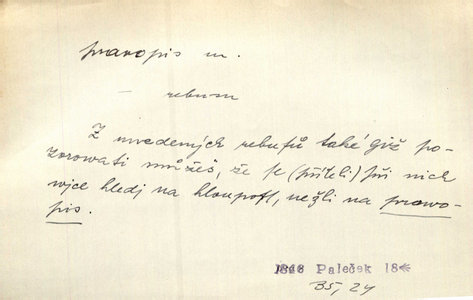 pravopis m.
– rebusu
Z uvedených rebusů také giž po-
zorowati můžeš, že se (příteli) při nich
wjce hledj na hloupost, nežli na prawo-
pis.
Paleček 18
B5, 24